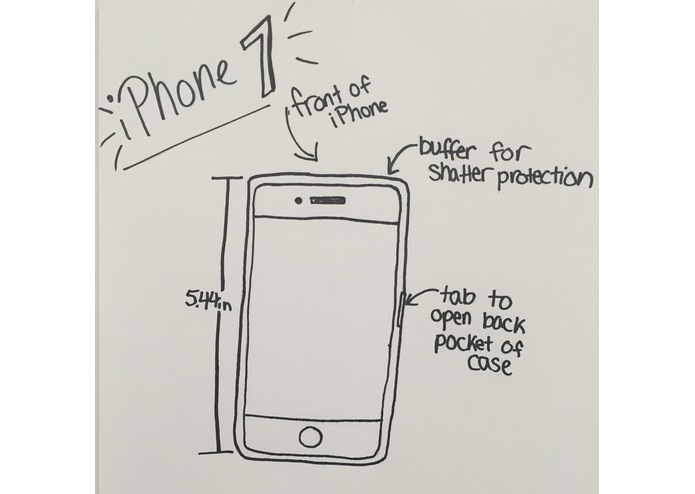 iPhone 7
front of
iPhone
buffer for
shatter protection
5.44in
tab to
open back
pocket of
case